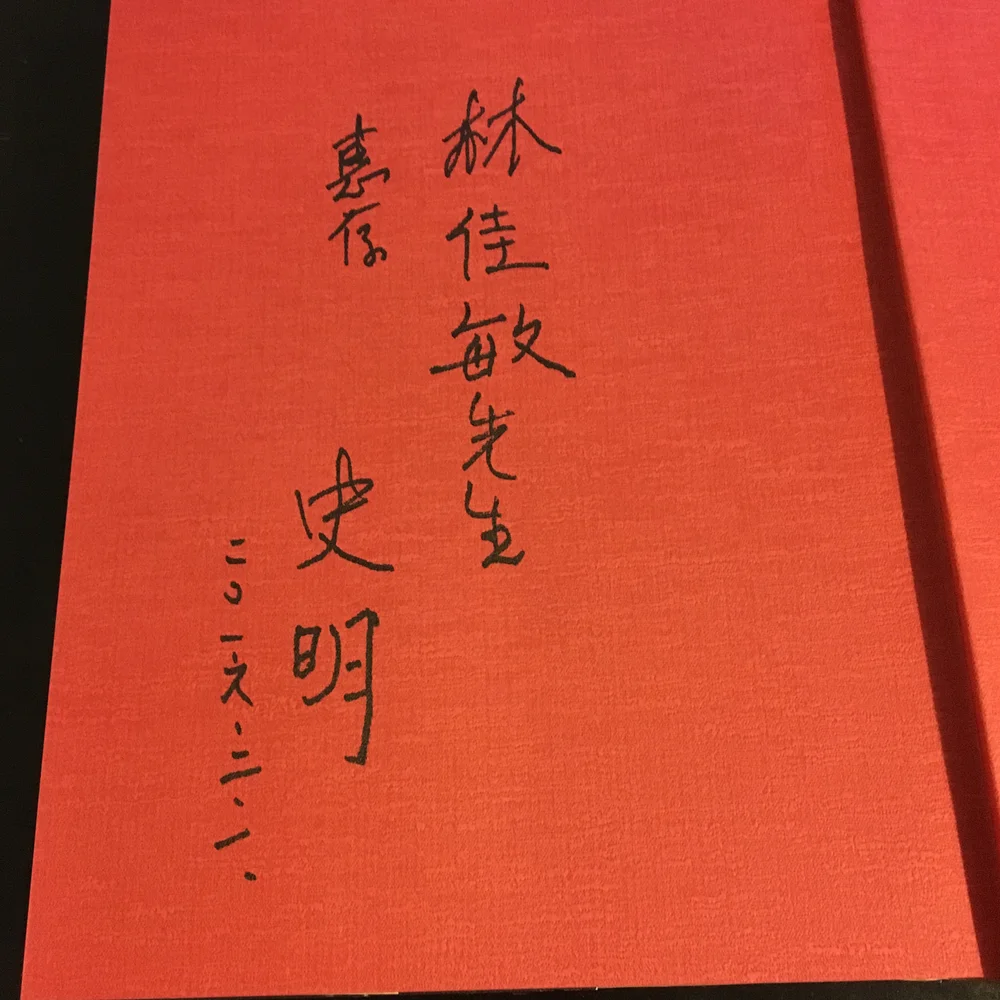 林佳敏先生
惠存
史明
二〇一六.二.一.